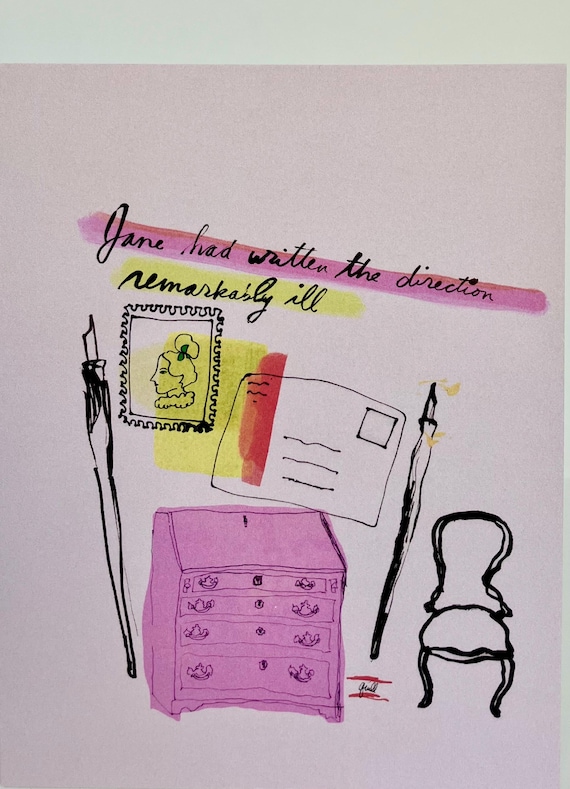 Jane had written the direction
remarkably ill